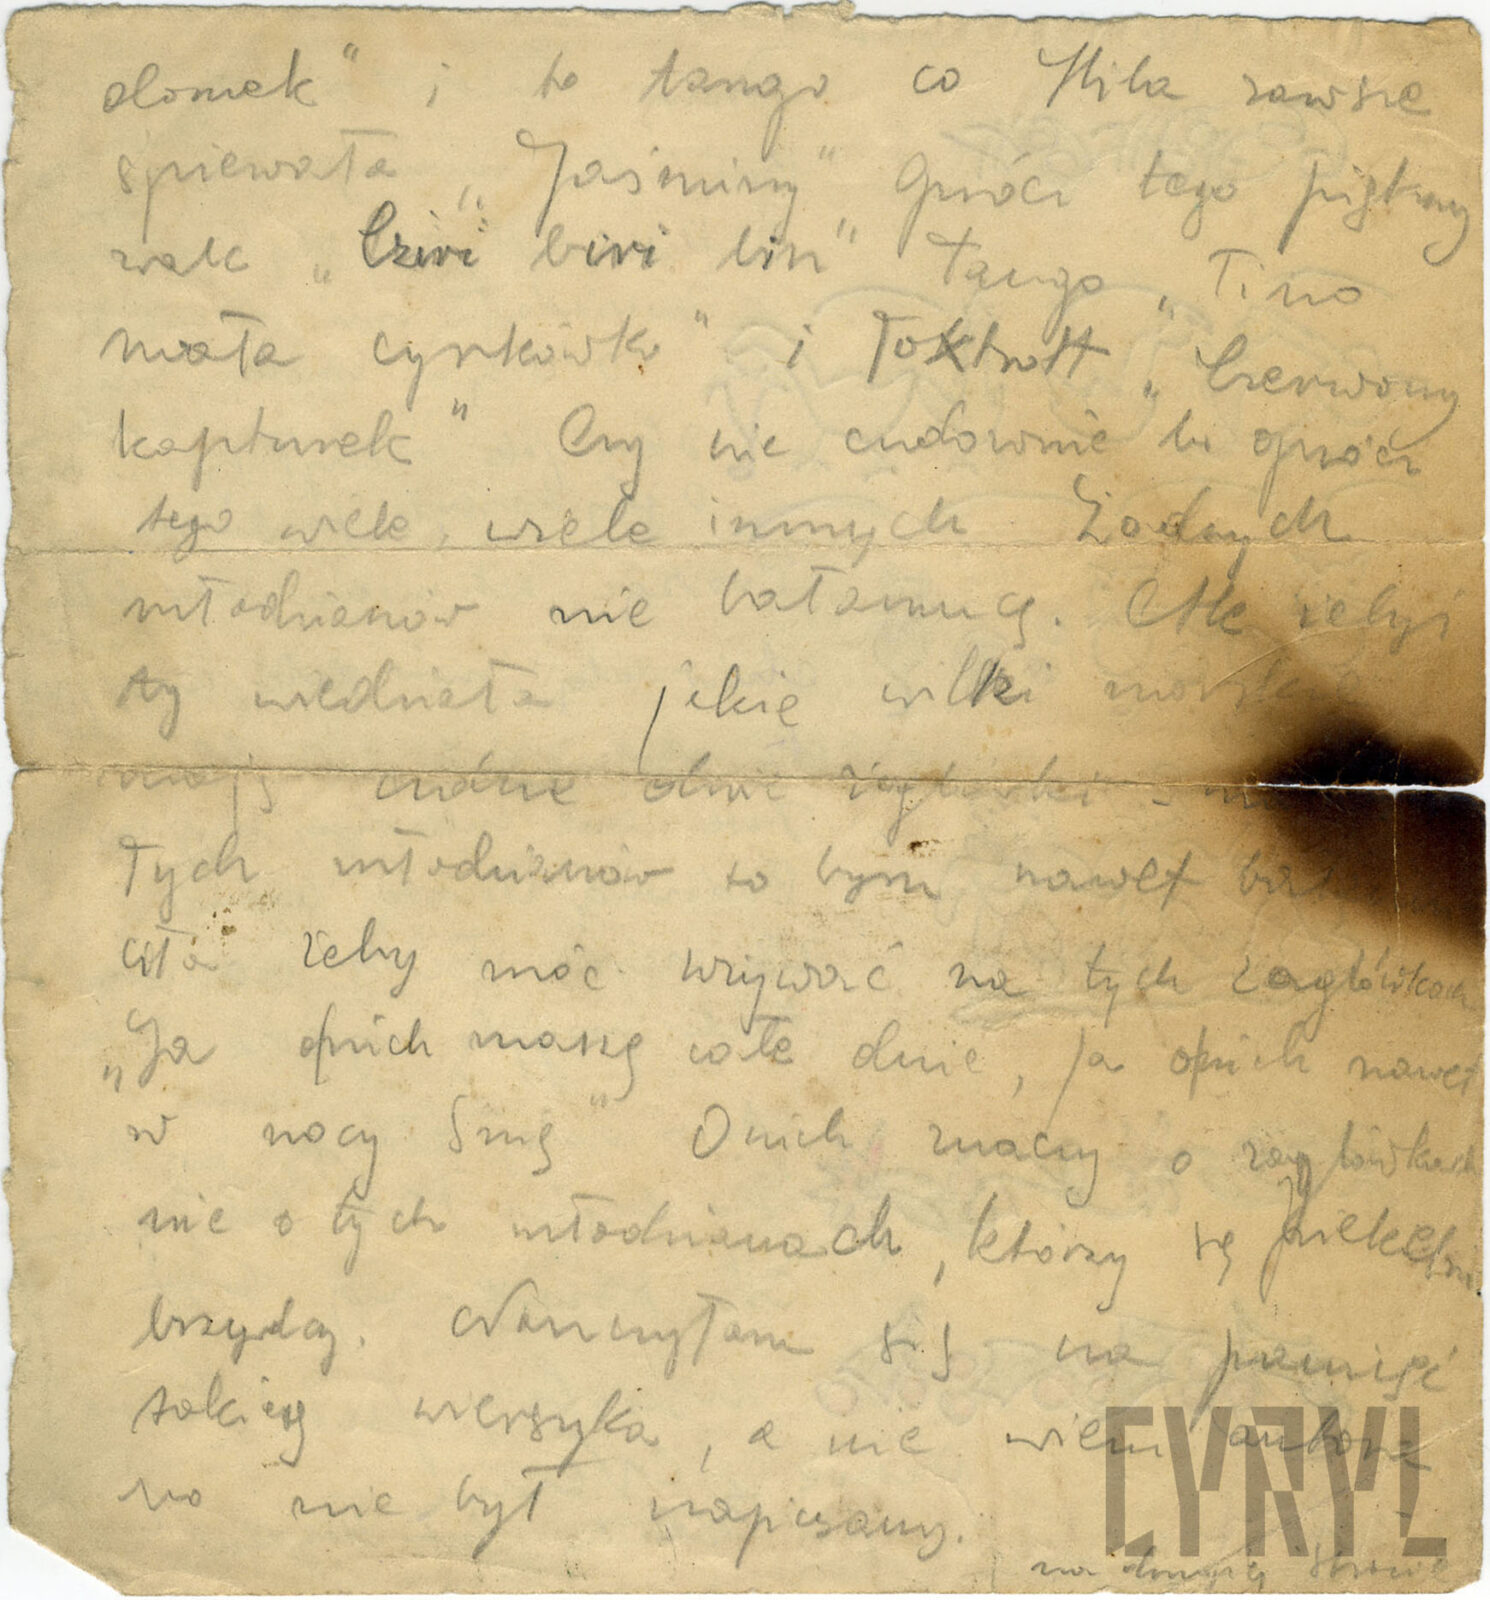 domek" i to tango co Mila zawsze
śpiewała „Jaśminy" Oprócz tego piękny
walc „Cziri biri bin" Tango „Tino
mała cyrkówko" i Foxtrott „Czerwony
kapturek" Czy nie cudownie to oprócz
tego wiele, wiele innych Żadnych
młodzianów nie bałamucę. Ale żebyś
ty wiedziała jakie wilki morskie
mają cudne dwie żaglówki
Tych młodzianów to bym nawet
ciła żeby móc używać na tych żaglówkach
„Ja onich marzę całe dnie, ja onich nawet
w nocy śnię" Onich znaczy o żaglówkach
nie o tych młodzianach, którzy są piekelnie
brzydcy. Nauczyłam się na pamięć
takieg wierszyka, a nie wiem autora
bo nie był napisany.
na drugiej stronie
CYRYL